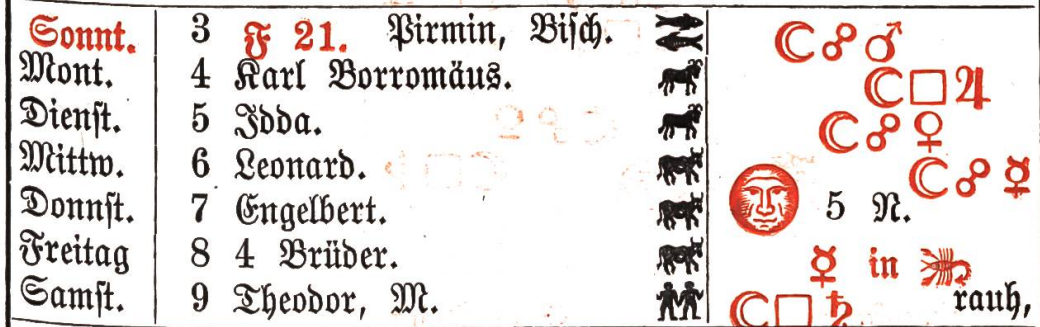 Sonnt. 3 F 21. Pirmin, Bisch. ☾☍♂
Mont. 4 Karl Borromäus. ☾□♃
Dienst. 5 Idda. ☾☍♀
Mittw. 6 Leonard. ☾☍☿
Donnst. 7 Engelbert. 5 N.
Freitag 8 4 Brüder. ☿ in
Samst. 9 Theodor, M. ☾□♄ rauh,